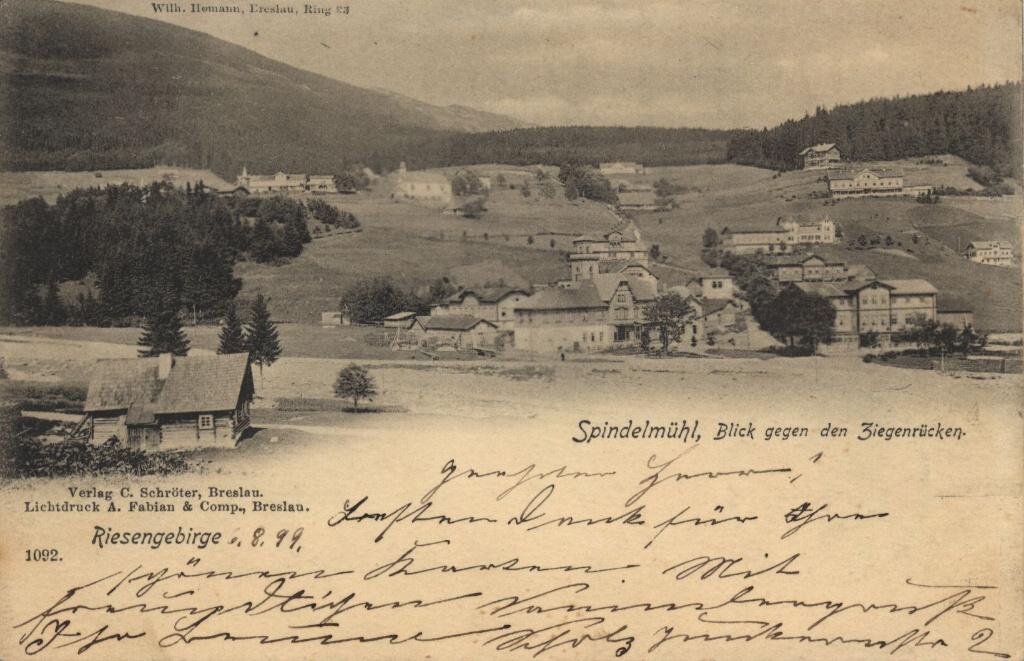 Wilh. Homann, Breslau, Ring 23
Spindelmühl, Blick gegen den Ziegenrücken.
Verlag C. Schröter, Breslau.
Lichtdruck A. Fabian & Comp., Breslau.
Riesengebirge 6.8.99.
1092.
Geehrter Herr!
Besten Dank für Ihre
schönen Karten. Mit
freundlichem Sammlergruß
Scholz
2